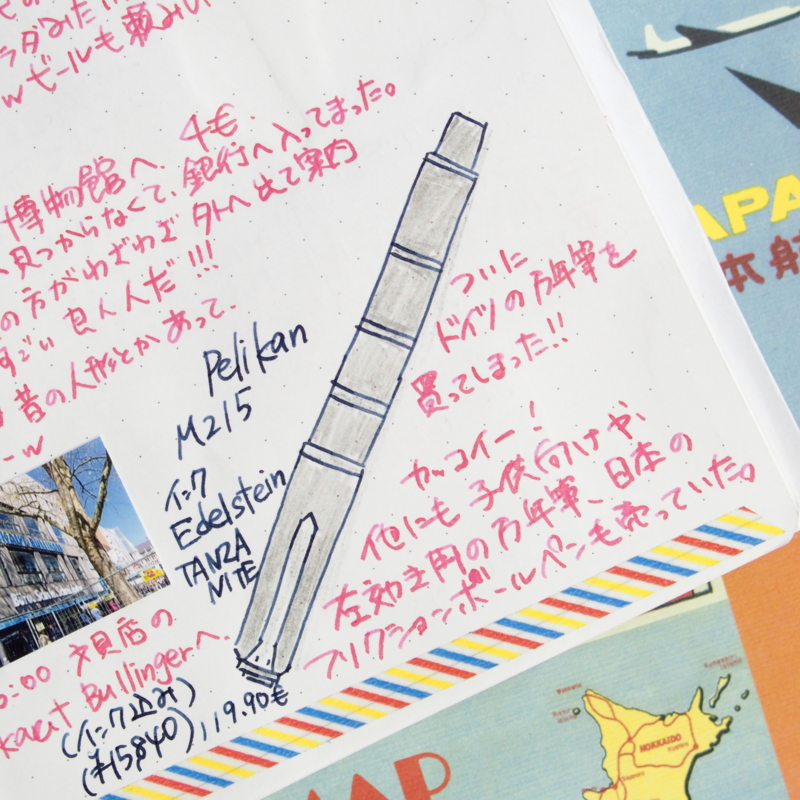 ラダみたい
wビールも頼み
博物館へ、4€.
見つからなくて、銀行へ入ってまった。
の方がわざわざ外へ出て案内
すごい良い人だ!!!
昔の人形とかあって、
-w
Pelikan
M215
インク
Edelstein
TANZA
NITE
ついに
ドイツの万年筆を
買ってしまった!!
カッコイー!
他にも子供向けや、
左効き用の万年筆、日本の
フリクションボールペンも売っていた。
:00 文具店の
kaut Bullingerへ.
(インク込み)
(¥15840) 119.90€
APA
本航
MAP
HOKKAIDO